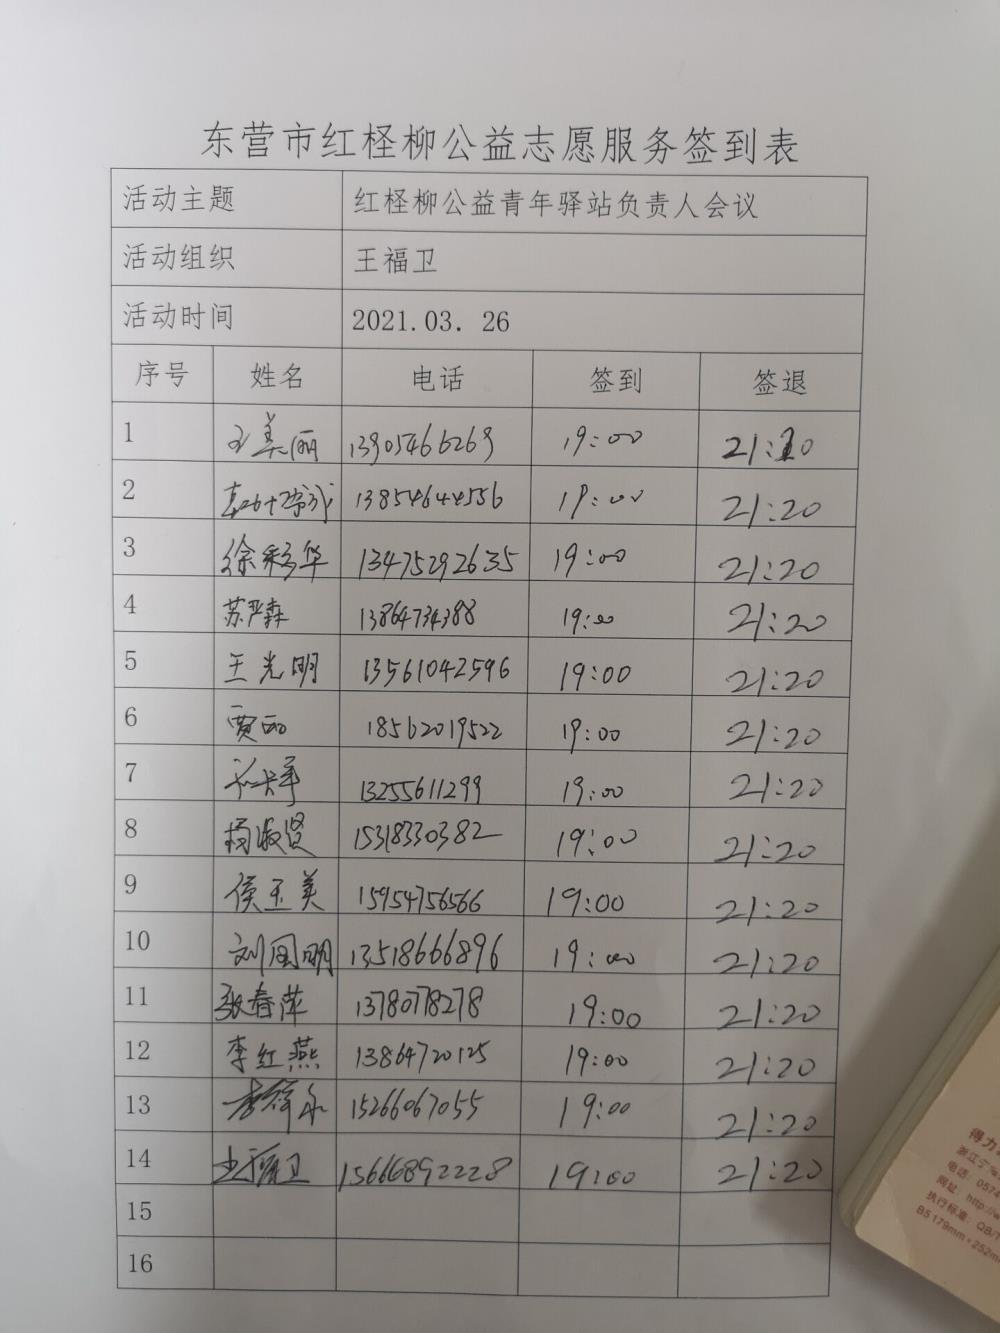 东营市红柽柳公益志愿服务签到表
活动主题 红柽柳公益青年驿站负责人会议
活动组织 王福卫
活动时间 2021.03. 26
序号 姓名 电话 签到 签退
1 王美丽 13905466269 19:00 21:20
2 13854644556 19:00 21:20
3 徐彩华 13475292635 19:00 21:20
4 苏严森 13864734388 19:00 21:20
5 王光明 13561042596 19:00 21:20
6 贾 18562019522 19:00 21:20
7 13255611299 19:00 21:20
8 杨淑贤 15318330382 19:00 21:20
9 侯玉美 15954756566 19:00 21:20
10 刘国明 13518666896 19:00 21:20
11 张春萍 1378078278 19:00 21:20
12 李红燕 13864720125 19:00 21:20
13 李 15266067055 19:00 21:20
14 王福卫 15666892228 19:00 21:20
15
16
得力
浙江宁
电话: 0574
网址: http://w
执行标准: QB/T
B5 179mm×252m